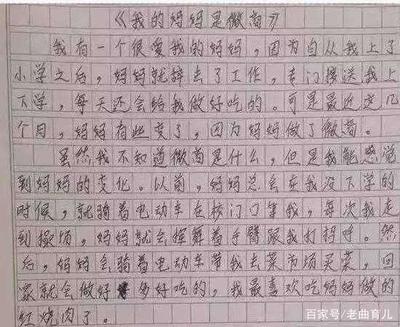 《我的妈妈是微商》
我有一个很爱我的妈妈，因为自从我上了
小学之后，妈妈就辞去了工作，专门接送我上
下学，每天还会给我做好吃的。可是最近这几
个月，妈妈有些变了，因为妈妈做了微商。
虽然我不知道微商是什么，但是我能感觉
到妈妈的变化。以前，妈妈总会在我没下学的
时候，就骑着电动车在校门口等我，每次我走
到操场，妈妈就会挥舞着手臂跟我打招呼。然
后，妈妈会骑着电动车带我去菜市场买菜，回
家就会做好多好吃的，我最喜欢吃妈妈做的
红烧肉了。
百家号/老曲育儿